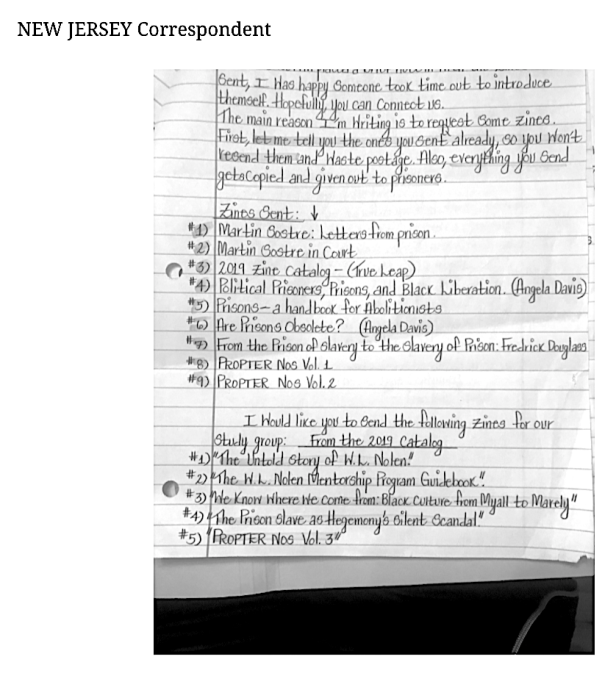 NEW JERSEY Correspondent
Sent, I Was happy Someone took time out to introduce
themself. Hopefully, you can Connect us.
The main reason I'm Writing is to request Some zines.
First, let me tell you the ones you Sent already, so you Won't
resend them and Waste postage. Also, everything you Send
gets Copied and given out to prisoners.
Zines Sent: ↓
#1) Martin Sostre: Letters from prison.
#2) Martin Sostre in Court
#3) 2019 Zine Catalog - (True Leap)
#4) Political Prisoners, Prisons, and Black Liberation. (Angela Davis)
#5) Prisons - a handbook for Abolitionists
#6) Are Prisons Obsolete? (Angela Davis)
#7) From the Prison of Slavery to the Slavery of Prison: Fredrick Douglass
#8) PROPTER NOS Vol. 1
#9) PROPTER NOS Vol. 2
I Would like you to Send the following Zines for our
Study group: From the 2019 Catalog
#1) "The Untold Story of W.L. Nolen."
#2) "The W.L. Nolen Mentorship Program Guidebook."
#3) "We Know Where We Come from: Black Culture from Myall to Marely"
#4) "The Prison Slave as Hegemony's Silent Scandal."
#5) "PROPTER NOS Vol. 3"